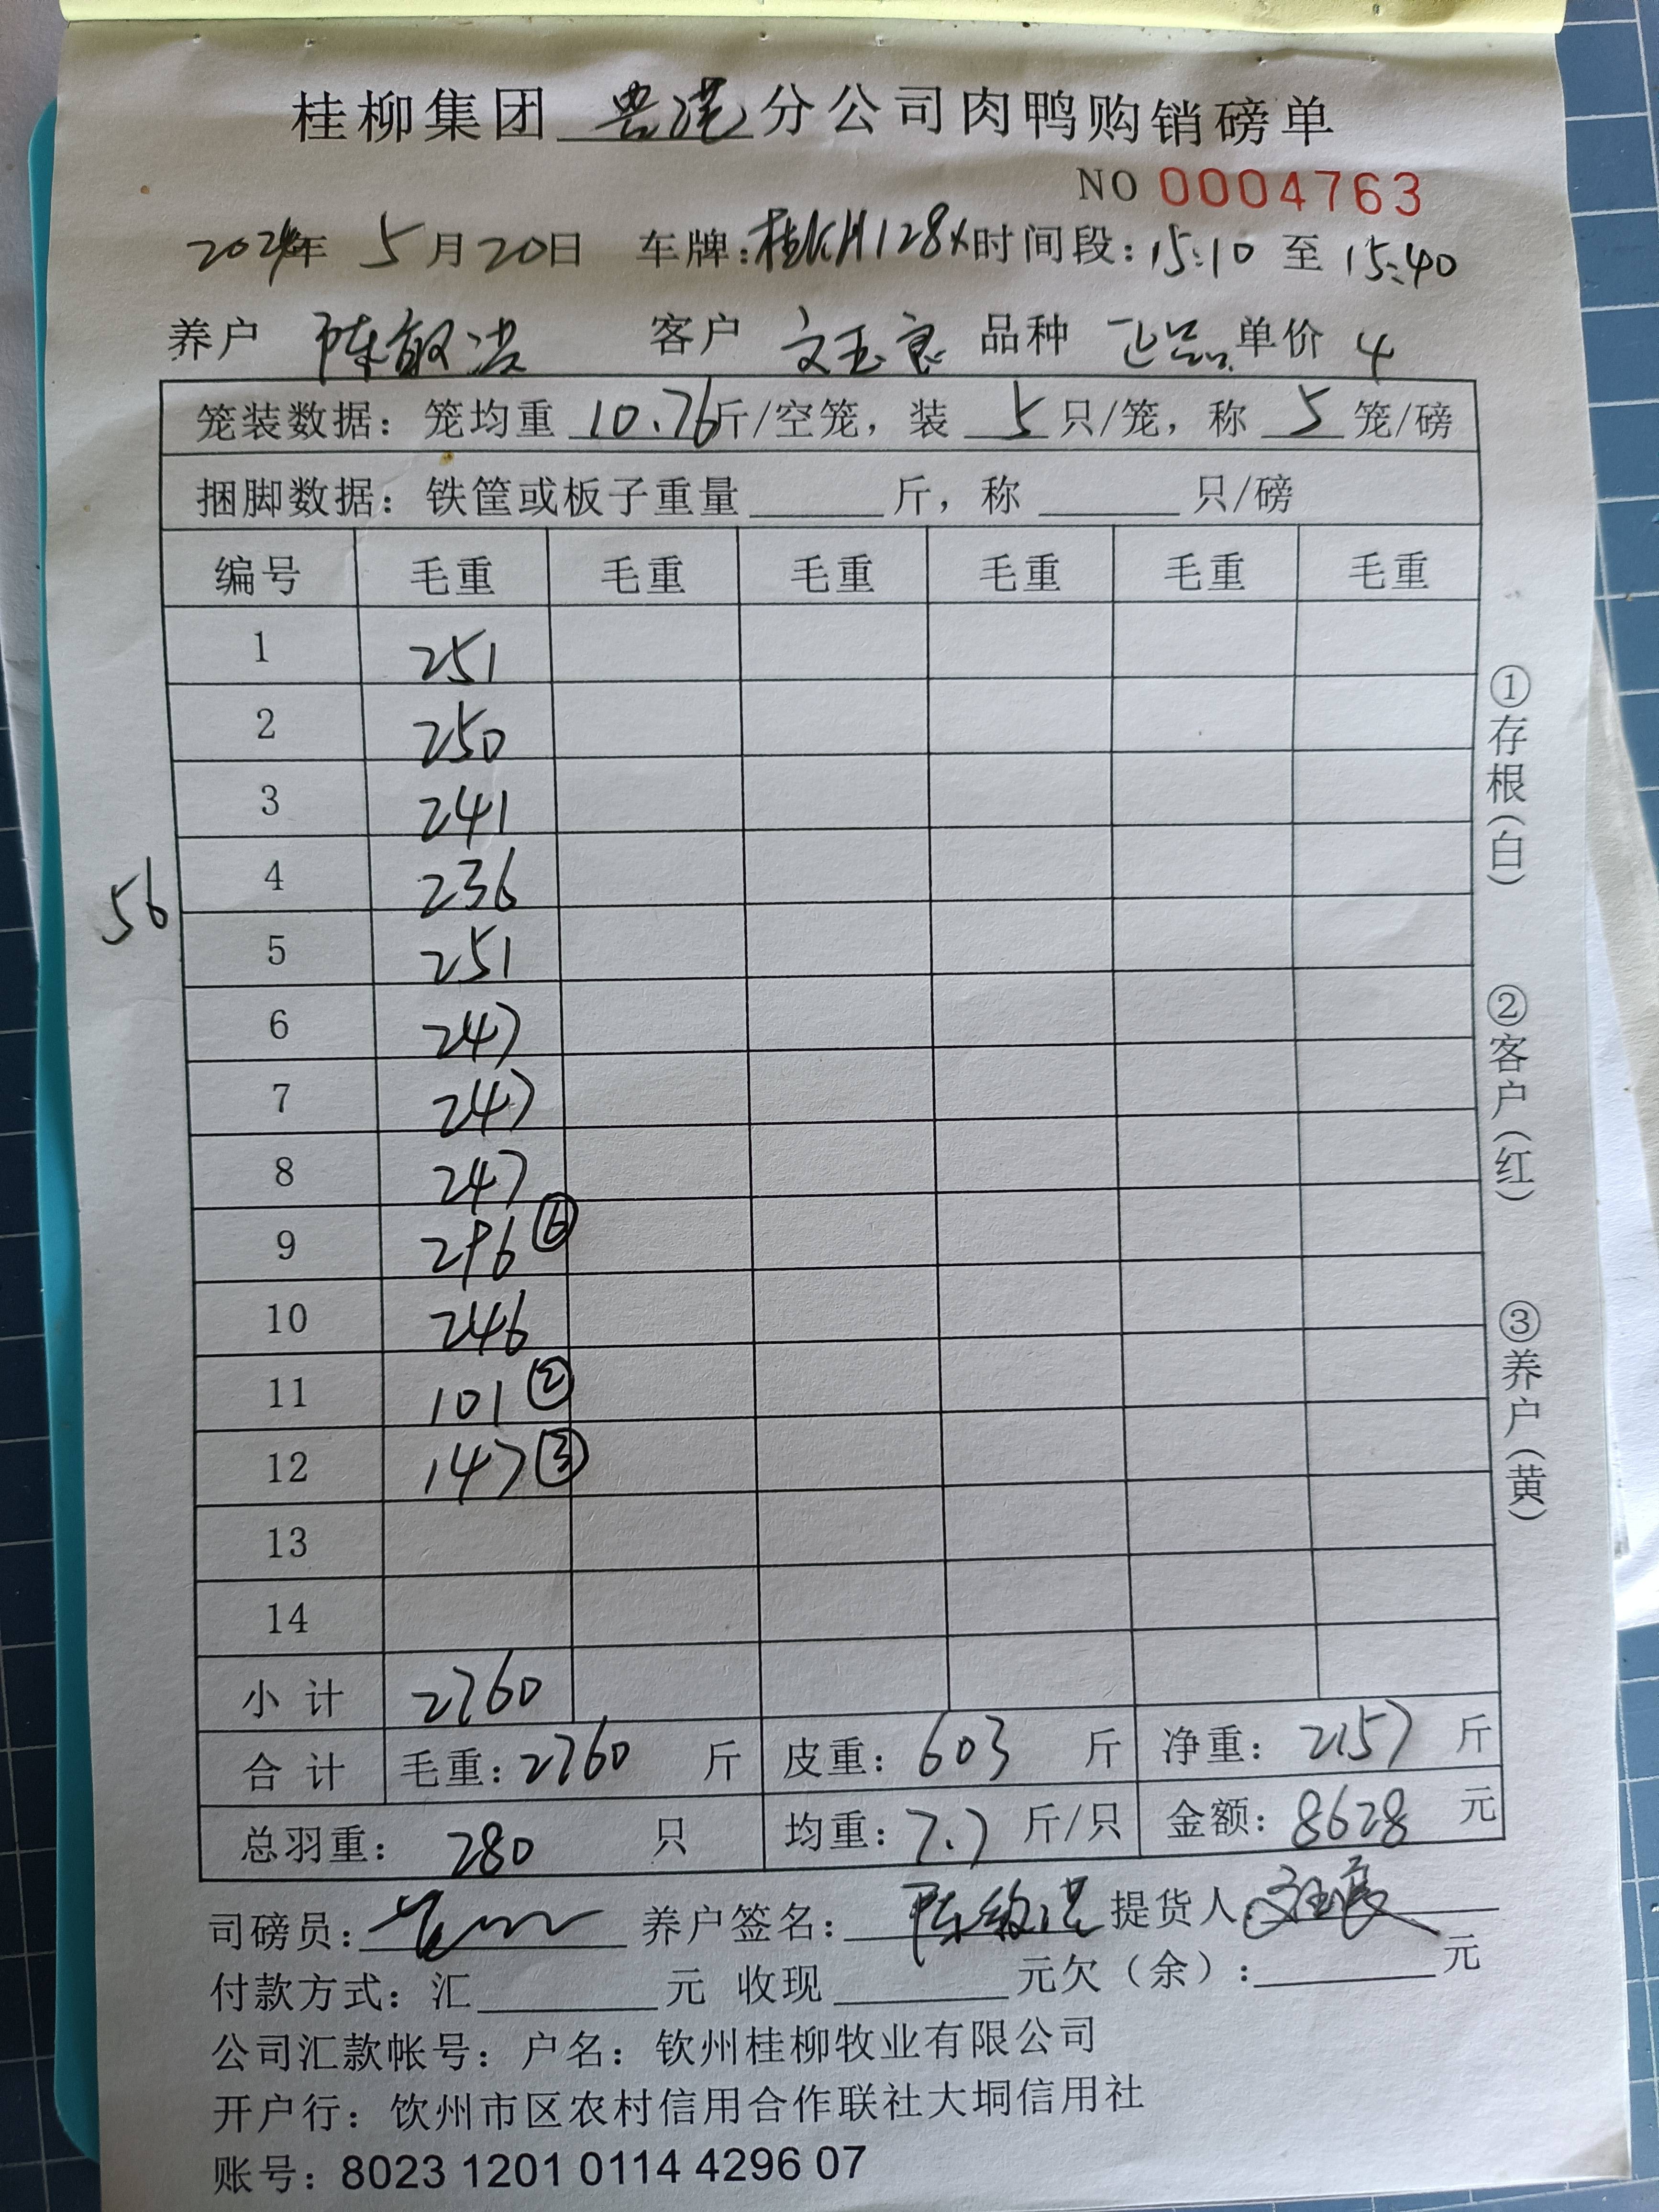 桂柳集团 贵港 分公司肉鸭购销磅单
NO 0004763
2024年 5月20日 车牌:桂KH128X 时间段:15:10 至 15:40
养户 陈敏洪 客户 文玉良 品种 正品 单价 4
笼装数据: 笼均重 10.76 斤/空笼, 装 5 只/笼, 称 5 笼/磅
捆脚数据: 铁筐或板子重量 斤, 称 只/磅
编号 毛重 毛重 毛重 毛重 毛重 毛重
1 251
2 250
3 241
4 236
56
5 251
6 247
7 247
8 247
9 296 ⑥
10 246
11 101 ②
12 147 ③
13
14
小计 2760
合计 毛重: 2760 斤 皮重: 603 斤 净重: 2157 斤
总羽重: 280 只 均重: 7.7 斤/只 金额: 8628 元
司磅员: 养户签名: 陈敏洪 提货人 文玉良
付款方式: 汇 元 收现 元欠(余): 元
公司汇款帐号: 户名: 钦州桂柳牧业有限公司
开户行: 钦州市区农村信用合作联社大垌信用社
账号: 8023 1201 0114 4296 07
①存根(白)
②客户(红)
③养户(黄)